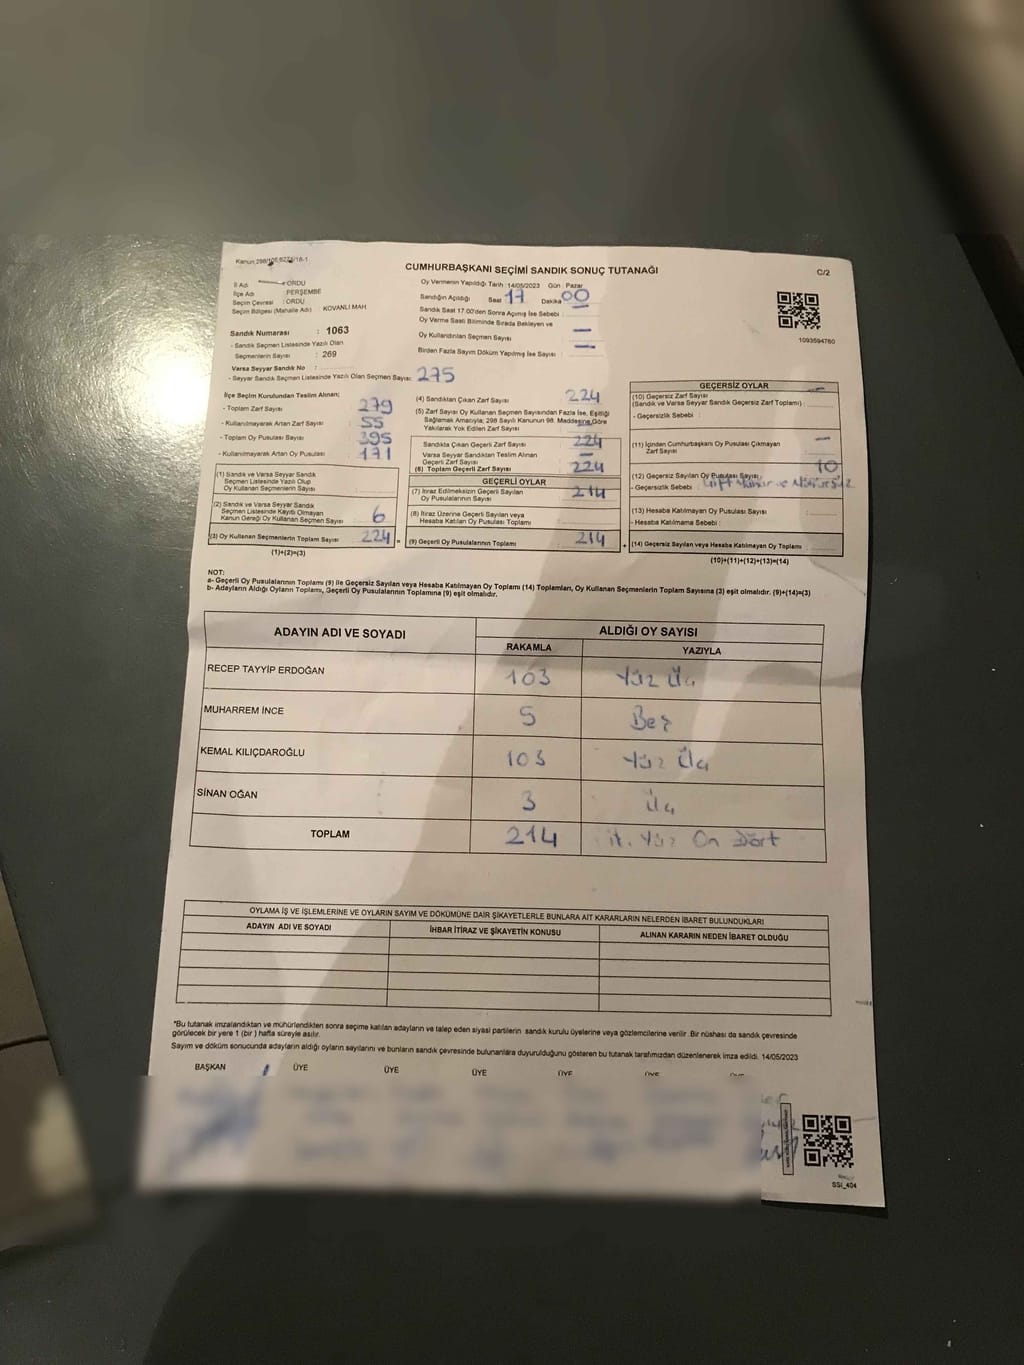 Kanun:298/106,6271/18-1
CUMHURBAŞKANI SEÇİMİ SANDIK SONUÇ TUTANAĞI
C/2
İl Adı : ORDU
İlçe Adı : PERŞEMBE
Seçim Çevresi : ORDU
Seçim Bölgesi (Mahalle Adı) KOVANLI MAH.
Sandık Numarası : 1063
- Sandık Seçmen Listesinde Yazılı Olan
Seçmenlerin Sayısı : 269
Varsa Seyyar Sandık No :
- Seyyar Sandık Seçmen Listesinde Yazılı Olan Seçmen Sayısı: 275
Oy Vermenin Yapıldığı Tarih :14/05/2023 Gün : Pazar
Sandığın Açıldığı Saat 17 Dakika 00
Sandık Saat 17.00'den Sonra Açımış İse Sebebi :
Oy Verme Saati Bitiminde Sırada Bekleyen ve
Oy Kullandırılan Seçmen Sayısı : —
Birden Fazla Sayım Döküm Yapılmış İse Sayısı : —
1093594760
İlçe Seçim Kurulundan Teslim Alınan;
- Toplam Zarf Sayısı : 279
- Kullanılmayarak Artan Zarf Sayısı : 55
- Toplam Oy Pusulası Sayısı : 395
- Kullanılmayarak Artan Oy Pusulası : 171
(1) Sandık ve Varsa Seyyar Sandık
Seçmen Listesinde Yazılı Olup
Oy Kullanan Seçmenlerin Sayısı
(2) Sandık ve Varsa Seyyar Sandık
Seçmen Listesinde Kayıtlı Olmayan
Kanun Gereği Oy Kullanan Seçmen Sayısı 6
(3) Oy Kullanan Seçmenlerin Toplam Sayısı 224 =
(1)+(2)=(3)
(4) Sandıktan Çıkan Zarf Sayısı : 224
(5) Zarf Sayısı Oy Kullanan Seçmen Sayısından Fazla İse, Eşitliği
Sağlamak Amacıyla; 298 Sayılı Kanunun 98. Maddesine Göre
Yakılarak Yok Edilen Zarf Sayısı
Sandıkta Çıkan Geçerli Zarf Sayısı : 224
Varsa Seyyar Sandıktan Teslim Alınan
Geçerli Zarf Sayısı —
(6) Toplam Geçerli Zarf Sayısı : 224
GEÇERLİ OYLAR
(7) İtiraz Edilmeksizin Geçerli Sayılan
Oy Pusulalarının Sayısı : 214
(8) İtiraz Üzerine Geçerli Sayılan veya
Hesaba Katılan Oy Pusulası Toplamı
(9) Geçerli Oy Pusulalarının Toplamı : 214 +
GEÇERSİZ OYLAR
(10) Geçersiz Zarf Sayısı —
(Sandık ve Varsa Seyyar Sandık Geçersiz Zarf Toplamı) :
- Geçersizlik Sebebi :
(11) İçinden Cumhurbaşkanı Oy Pusulası Çıkmayan —
Zarf Sayısı
(12) Geçersiz Sayılan Oy Pusulası Sayısı : 10
- Geçersizlik Sebebi : Çift Mühür ve Mühürsüz
(13) Hesaba Katılmayan Oy Pusulası Sayısı :
- Hesaba Katılmama Sebebi :
(14) Geçersiz Sayılan veya Hesaba Katılmayan Oy Toplamı
(10)+(11)+(12)+(13)=(14)
NOT:
a- Geçerli Oy Pusulalarının Toplamı (9) ile Geçersiz Sayılan veya Hesaba Katılmayan Oy Toplamı (14) Toplamları, Oy Kullanan Seçmenlerin Toplam Sayısına (3) eşit olmalıdır. (9)+(14)=(3)
b- Adayların Aldığı Oyların Toplamı, Geçerli Oy Pusulalarının Toplamına (9) eşit olmalıdır.
ADAYIN ADI VE SOYADI
ALDIĞI OY SAYISI
RAKAMLA YAZIYLA
RECEP TAYYİP ERDOĞAN 103 Yüz Üç
MUHARREM İNCE 5 Beş
KEMAL KILIÇDAROĞLU 103 Yüz Üç
SİNAN OĞAN 3 Üç
TOPLAM 214 İki Yüz On Dört
OYLAMA İŞ VE İŞLEMLERİNE VE OYLARIN SAYIM VE DÖKÜMÜNE DAİR ŞİKAYETLERLE BUNLARA AİT KARARLARIN NELERDEN İBARET BULUNDUKLARI
ADAYIN ADI VE SOYADI İHBAR İTİRAZ VE ŞİKAYETİN KONUSU ALINAN KARARIN NEDEN İBARET OLDUĞU
*Bu tutanak imzalandıktan ve mühürlendikten sonra seçime katılan adayların ve talep eden siyasi partilerin sandık kurulu üyelerine veya gözlemcilerine verilir .Bir nüshası da sandık çevresinde
görülecek bir yere 1 (bir) hafta süreyle asılır.
Sayım ve döküm sonucunda adayların aldığı oyların sayılarını ve bunların sandık çevresinde bulunanlara duyurulduğunu gösteren bu tutanak tarafımızdan düzenlenerek imza edildi. 14/05/2023
BAŞKAN ÜYE ÜYE ÜYE ÜYE ÜYE ÜYE
SSI_404